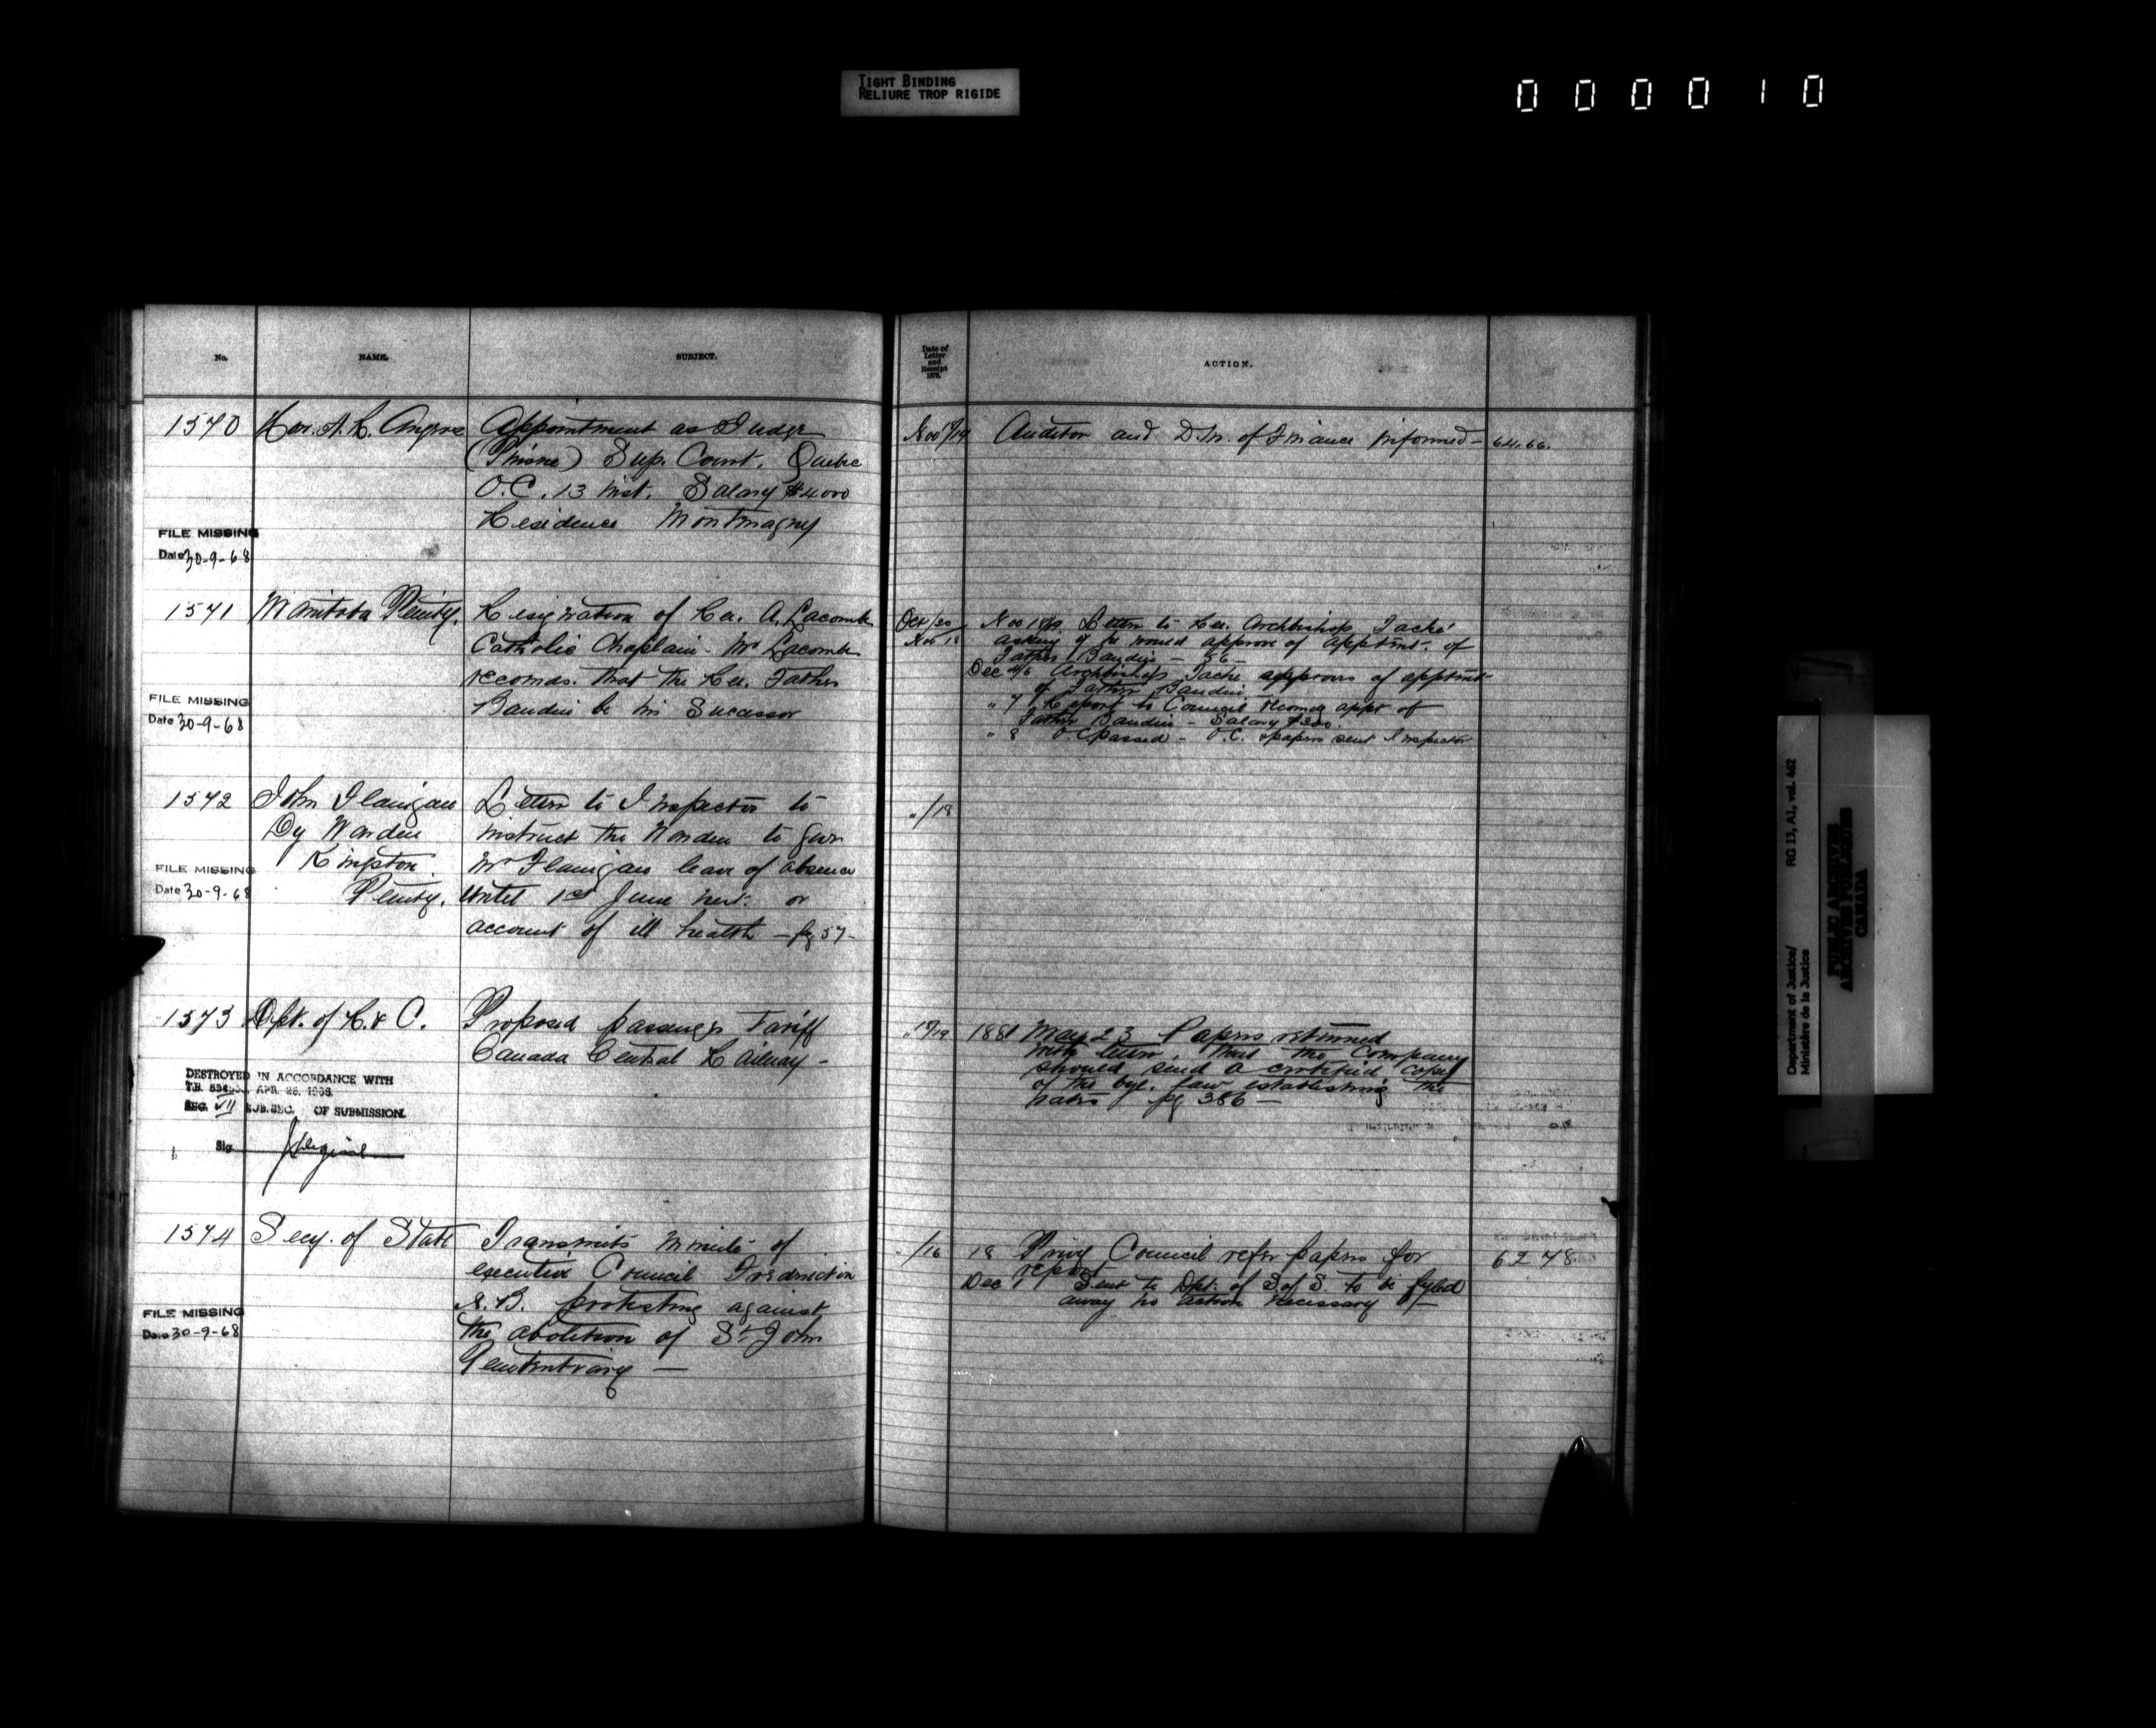 TIGHT BINDING
RELIURE TROP RIGIDE
000010
No. NAME. SUBJECT.
1570 Hon. A. R. Angers Appointment as Judge
(Puisne) Sup. Court. Quebec
O.C. 13 inst. Salary $4000
Residence Montmagny
FILE MISSING
Date 30-9-68
1571 Manitoba Penity. Resignation of Rev. A. Lacombe
Catholic Chaplain - Mr Lacombe
recomds. that the Rev. Father
Baudin be his Sucessor
FILE MISSING
Date 30-9-68
1572 John Flanigan Letter to Inspector to
Dy Warden instruct the Warden to give
Kingston Mr Flanigan leave of absence
Penity. until 1st June next on
account of ill health - pg 57-
FILE MISSING
Date 30-9-68
1573 Dpt. of R. & C. Proposed passenger Tariff
Canada Central Railway -
DESTROYED IN ACCORDANCE WITH
T.B. APR. 26,
SEC. VII SUB.SEC. OF SUBMISSION.
Sig.
1574 Secy. of State Transmits Minute of
executive Council Fredericton
N.B. protesting against
the abolition of St John
Penitentiary -
FILE MISSING
Date 30-9-68
Date of
Letter
and
Receipt
187
ACTION.
Nov /19 Auditor and D.M. of Finance informed - 64.66.
Oct/20 Nov 18 Letter to Rev. Archbishop Taché
Nov 18 asking if he would approve of apptmt. of
Father Baudin - 56 -
Dec 4/6 Archbishop Tache approves of apptmt
of Father Baudin -
" 7 Report to Council recomdg appt of
Father Baudin - Salary
" 8 O.C. passed - O.C. & papers sent Inspector
"/18
"18/19 1881 May 23 Papers returned
with letter. that the Company
should send a certified copy
of the bye. law establishing the
rates pg 386 -
"/16 18 Privy Council refer papers for 6278
report
Dec 1 Sent to Dpt. of S. of S. to be fyled
away no action necessary -
Department of Justice/ RG 13, A1, vol. 462
Ministère de la Justice
PUBLIC ARCHIVES
ARCHIVES PUBLIQUES
CANADA